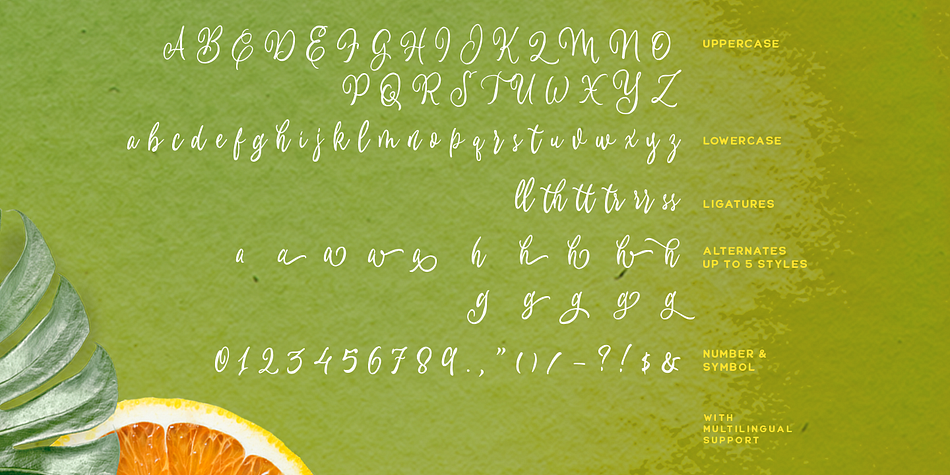 A B C D E F G H I J K L M N O
UPPERCASE
P Q R S T U V W X Y Z
a b c d e f g h i j k l m n o p q r s t u v w x y z
LOWERCASE
ll th tt tr rr ss
LIGATURES
a a a a a h h h h h
ALTERNATES
UP TO 5 STYLES
g g g g g
0 1 2 3 4 5 6 7 8 9 . , " ( ) / - ? ! $ &
NUMBER &
SYMBOL
WITH
MULTILINGUAL
SUPPORT